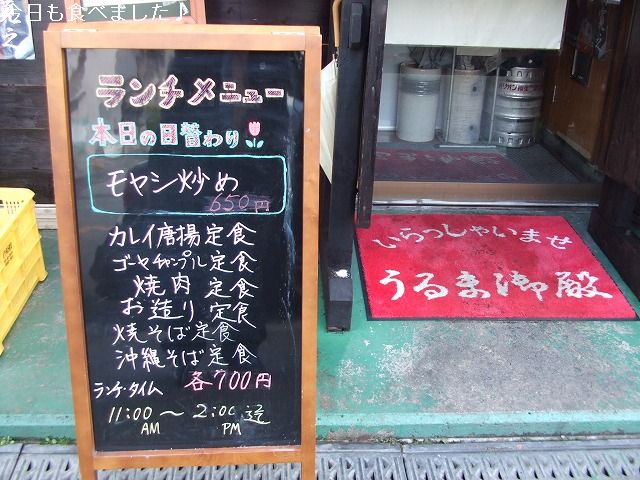 今日も食べました♪
ランチメニュー
本日の日替わり
モヤシ炒め
650円
カレイ唐揚定食
ゴーヤチャンプル定食
焼肉 定食
お造り定食
焼そば定食
沖縄そば定食
各700円
ランチ・タイム
11:00〜2:00迄
AM PM
いらっしゃいませ
うるま御殿